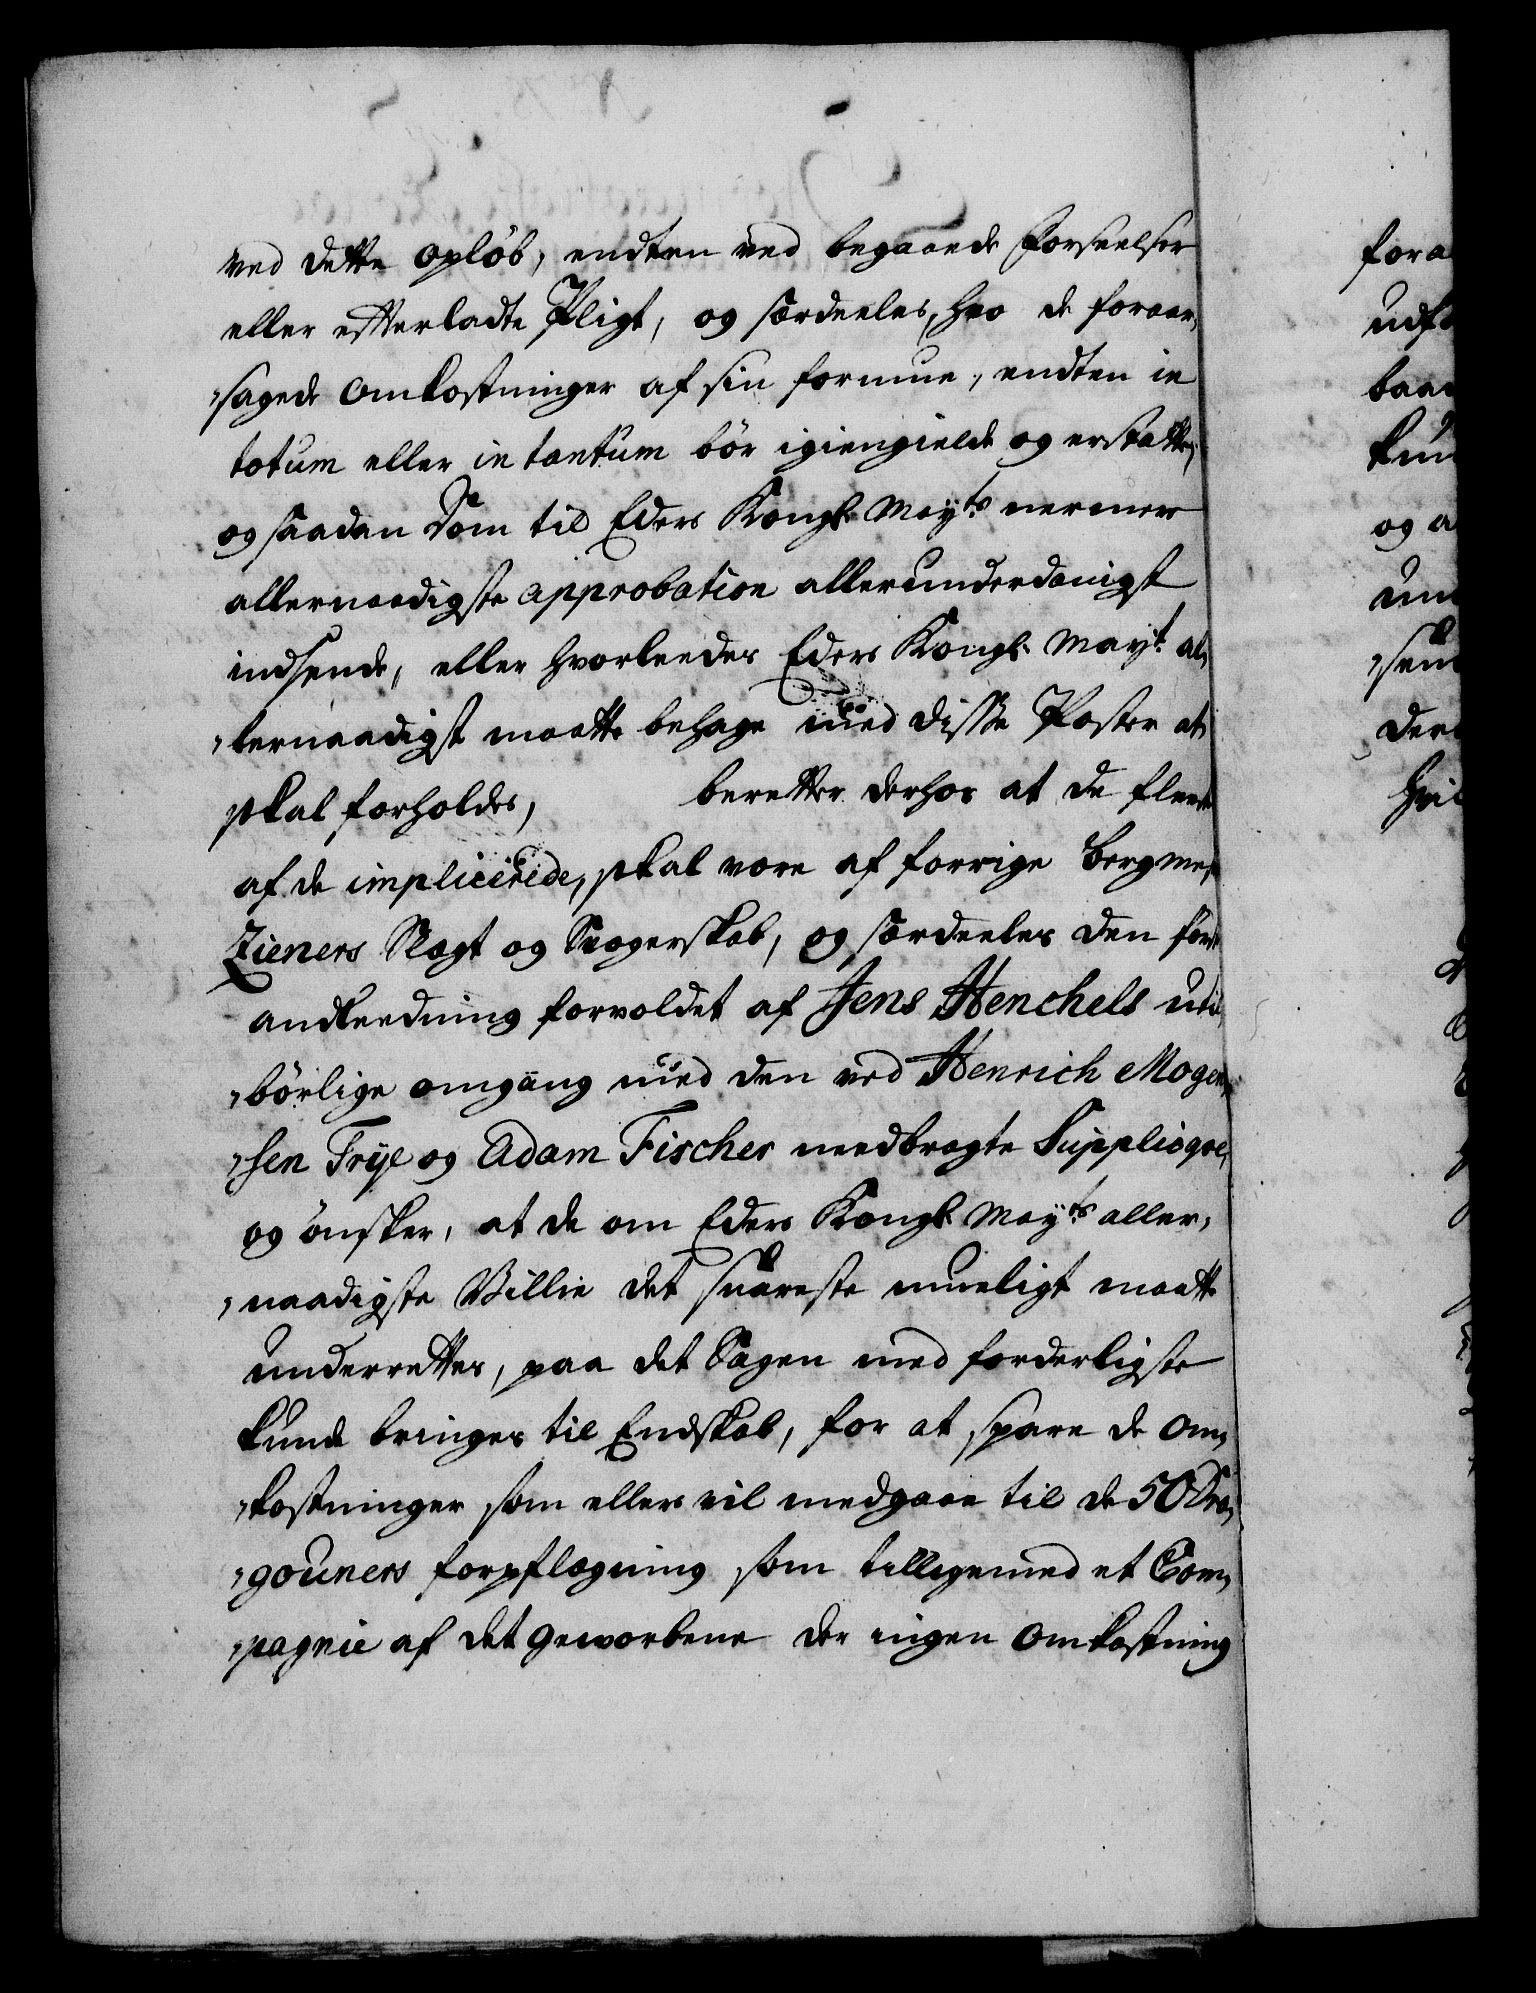 ved dette opløb, endten ved begaaede forseelser
eller efterladte Pligt, og særdeeles, hvo de foraar,
,sagede omkostninger af sin formue, endten in
totum eller in tantum bør igiengielde og erstatte,
og saadan Dom til Eders Kongl: May:ts nermere
allernaadigste approbation allerunderdanigst
indsende, eller hvorleedes Eders Kongl: May:t al,
,lernaadigst maatte behage med disse Poster at
skal forholdes, beretter derhos at de fleeste
af de implicerede, skal være af forrige Bergmest
Zieners Slægt og Svogerskab, og særdeeles den første
andleedning forvoldet af Jens Henchels util,
,børlige omgang med den ved Henrich Mogen,
,sen Frye og Adam Fischer needbragte Suppliqve,
og ønsker, at de om Eders Kongl: May:ts aller,
,naadigste Villie det snareste mueligt maatte
underrettes, paa det Sagen med forderligste
kunde bringes til Endskab, for at spare de om,
,kostninger som ellers vil medgaae til de 50 Dra,
,gouners forpflægning som tilligemed et Com,
,pagnie af det geworbene der ingen omkostning
fora
udf
baa
kun
og a
um
,sen
der
hvil